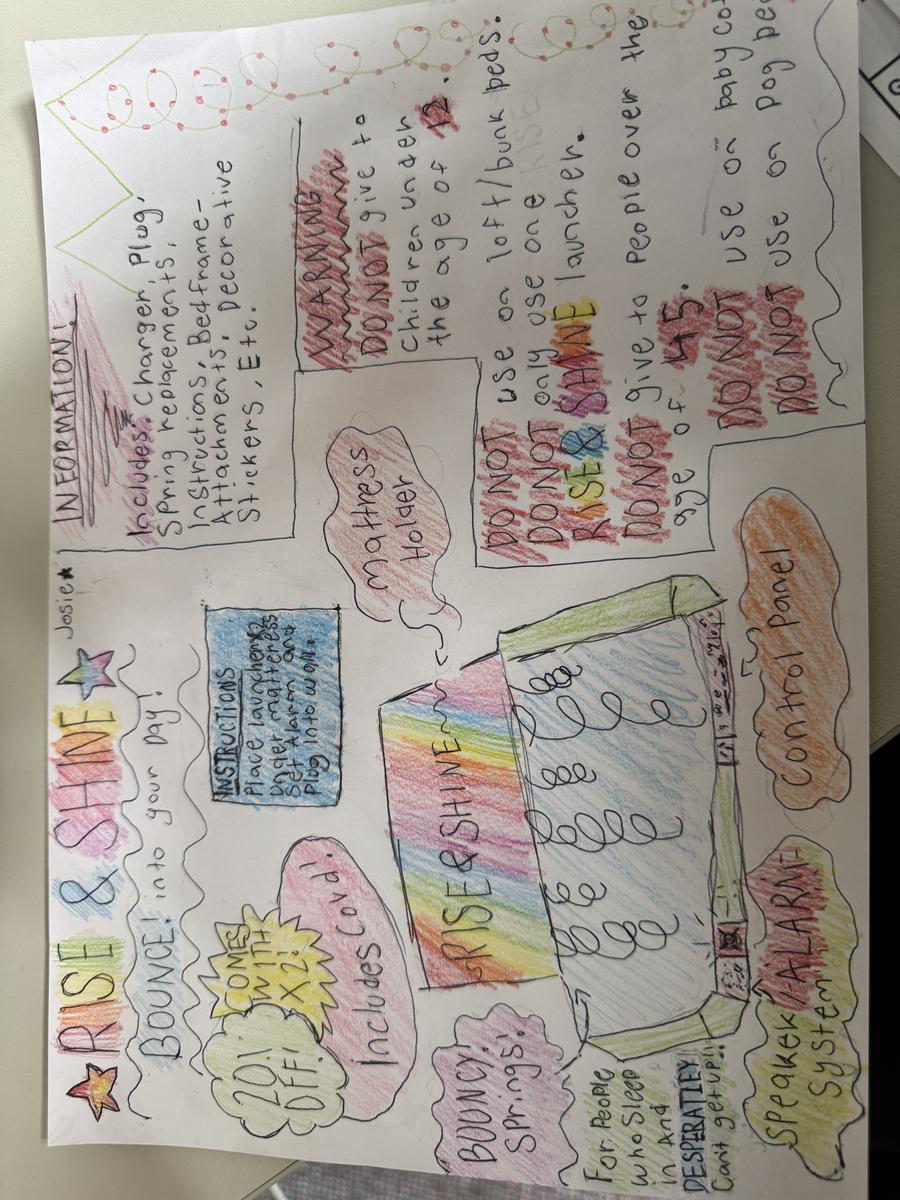 RISE & SHINE
Josie
BOUNCE! into your Day!
20%
OFF!
COMES
WITH
X2!
Includes Cord!
INSTRUCTIONS
Place launcherx2
under mattress
Set Alarm and
Plug into wall.
BOUNCY!
Springs!
RISE & SHINE
Mattress
Holder
For People
who Sleep
in And
DESPERATLEY
Can't get up!!
SPeaker/ALARM
System
Control Panel
INFORMATION!
Includes: Charger, Plug,
Spring replacements,
Instructions, Bedframe-
Attachments, Decorative
Stickers, Etc.
WARNING
DO NOT give to
Children under
the age of 12.
DO NOT use on loft/bunk beds.
DO NOT only use one RISE
RISE & SHINE launcher.
DO NOT give to People over the
age of 45.
DO NOT use on baby
DO NOT use on Dog